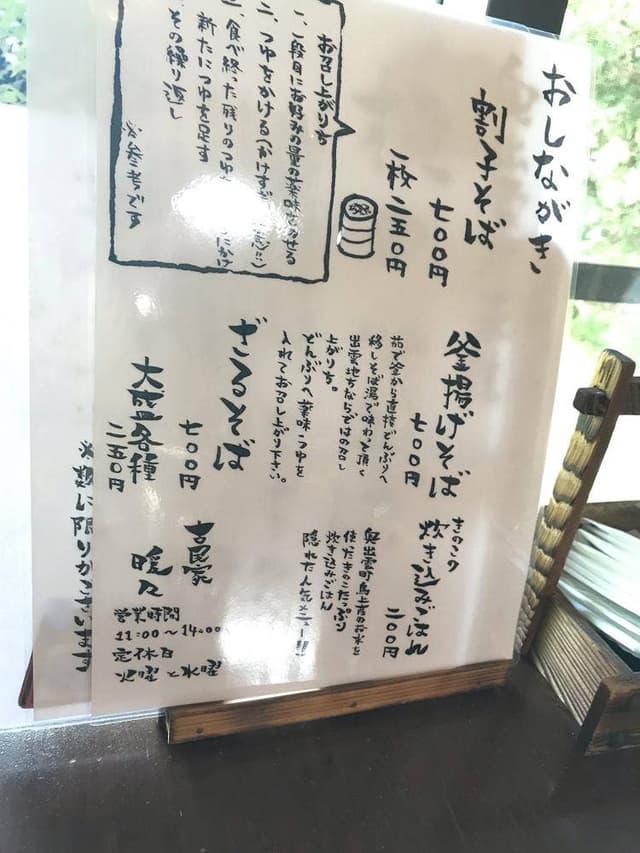 おしながき
割子そば
七〇〇円
一枚二五〇円
お召し上がり方
一、一段目にお好みの量の薬味をのせる
二、つゆをかける(かけすぎ
三、食べ終った残りのつゆ
新たにつゆを足す
その繰り返し
※参考です
釜揚げそば
七〇〇円
茹で釜から直接どんぶりへ
移しそば湯で味わって頂く
出雲地方ならではの召し
上がり方。
どんぶりへ薬味・つゆを
入れてお召し上がり下さい。
ざるそば
七〇〇円
大盛各種
二五〇円
きのこの
炊き込みごはん
二〇〇円
奥出雲町鳥上産のお米を
使ったきのこたっぷり
炊き込みごはん
隠れた人気メニュー!!
古民家
暖々
営業時間
11:00〜14:00
定休日
火曜と水曜
に限りがございます